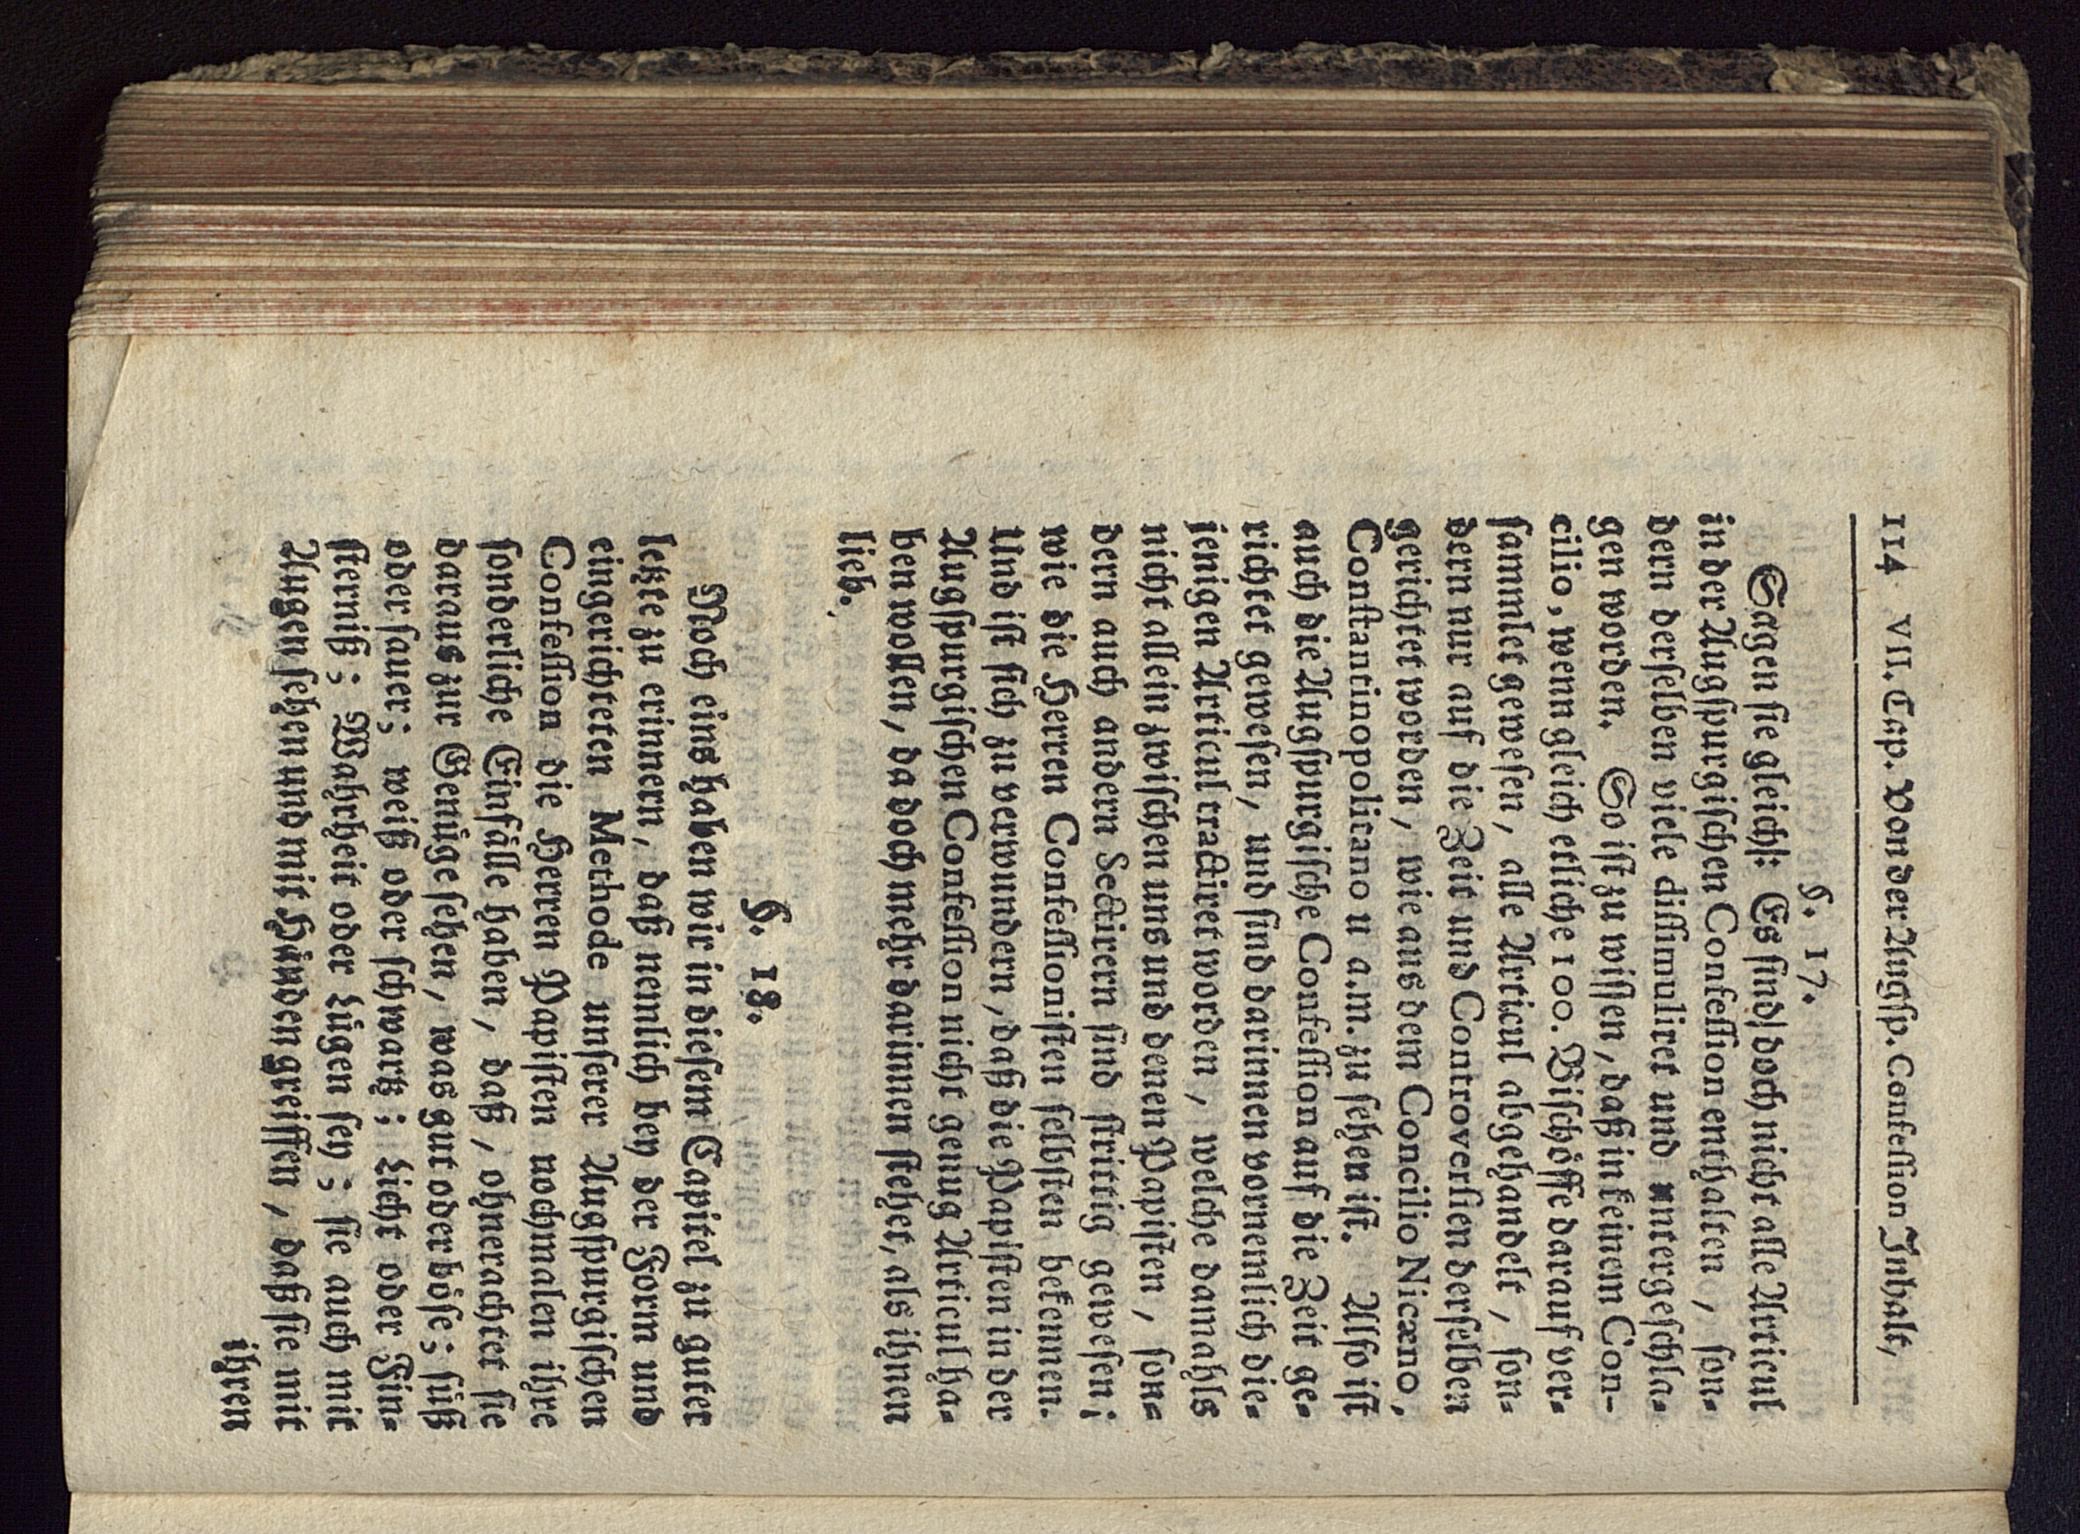 114 VII. Cap. Von der Augſp. Confeſſion Inhalt,
§. 17.
Sagen ſie gleich: Es ſind doch nicht alle Articul
in der Augſpurgiſchen Confeſſion enthalten, ſon-
dern derſelben viele diſſimuliret und untergeſchla-
gen worden. So iſt zu wiſſen, daß in keinem Con-
cilio, wenn gleich etliche 100. Biſchöffe darauf ver-
ſammlet geweſen, alle Articul abgehandelt, ſon-
dern nur auf die Zeit und Controverſien derſelben
gerichtet worden, wie aus dem Concilio Nicæno,
Conſtantinopolitano u a.m. zu ſehen iſt. Alſo iſt
auch die Augſpurgiſche Confeſſion auf die Zeit ge-
richtet geweſen, und ſind darinnen vornemlich die-
jenigen Articul tractiret worden, welche damahls
nicht allein zwiſchen uns und denen Papiſten, ſon-
dern auch andern Sectirern ſind ſtrittig geweſen;
wie die Herren Confeſſioniſten ſelbſten bekennen.
Und iſt ſich zu verwundern, daß die Papiſten in der
Augſpurgiſchen Confeſſion nicht genug Articul ha-
ben wollen, da doch mehr darinnen ſtehet, als ihnen
lieb.
§. 18.
Noch eins haben wir in dieſem Capitel zu guter
letzte zu erinnern, daß nemlich bey der Form und
eingerichteten Methode unſerer Augſpurgiſchen
Confeſſion die Herren Papiſten nochmalen ihre
ſonderliche Einfälle haben, daß, ohnerachtet ſie
daraus zur Genüge ſehen, was gut oder böſe; ſüß
oder ſauer; weiß oder ſchwartz; Licht oder Fin-
ſterniß; Wahrheit oder Lügen ſey; ſie auch mit
Augen ſehen und mit Händen greiffen, daß ſie mit
ihren